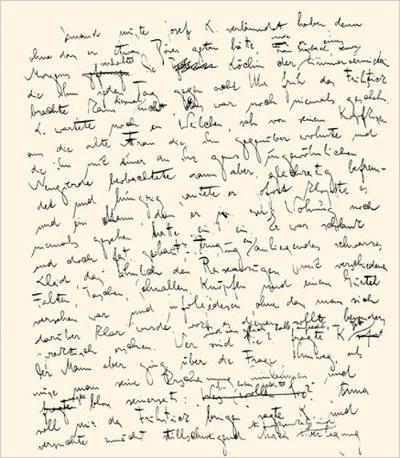 Jemand musste Josef K. verläumdet haben, denn
ohne dass er etwas Böses getan hätte,
Morgens verhaftet Die Köchin der Zimmervermieterin
die ihm jeden Tag gegen acht Uhr früh das Frühstück
brachte kam diesmal nicht. Das war noch niemals geschehn.
K. wartete noch ein Weilchen, sah von seinem Kopfkissen
aus die alte Frau die ihm gegenüber wohnte und
die ihn mit einer an ihr ganz ungewöhnlichen
Neugierde beobachtete dann aber gleichzeitig befrem-
det und hungrig läutete er. Sofort klopfte es
und ein Mann den er in Wohnung noch
niemals gesehn hatte ein. Er war schlank
und doch fest gebaut anliegendes schwarzes
Kleid, das ähnlich den Reiseanzügen mit verschiedenen
Falten, Taschen, Schnallen Knöpfen und einem Gürtel
versehen war und infolgedessen ohne dass man sich
darüber klar wurde, wozu es dienen sollte, besonders
praktisch Wer sind Sie? fragte K.
Der Mann aber ging über die Frage hinweg, als
müsse man seine Erscheinung hinnehmen und
bloss seinerseits: Anna
soll mir das Frühstück bringen sagte K. und
versuchte zunächst stillschweigend